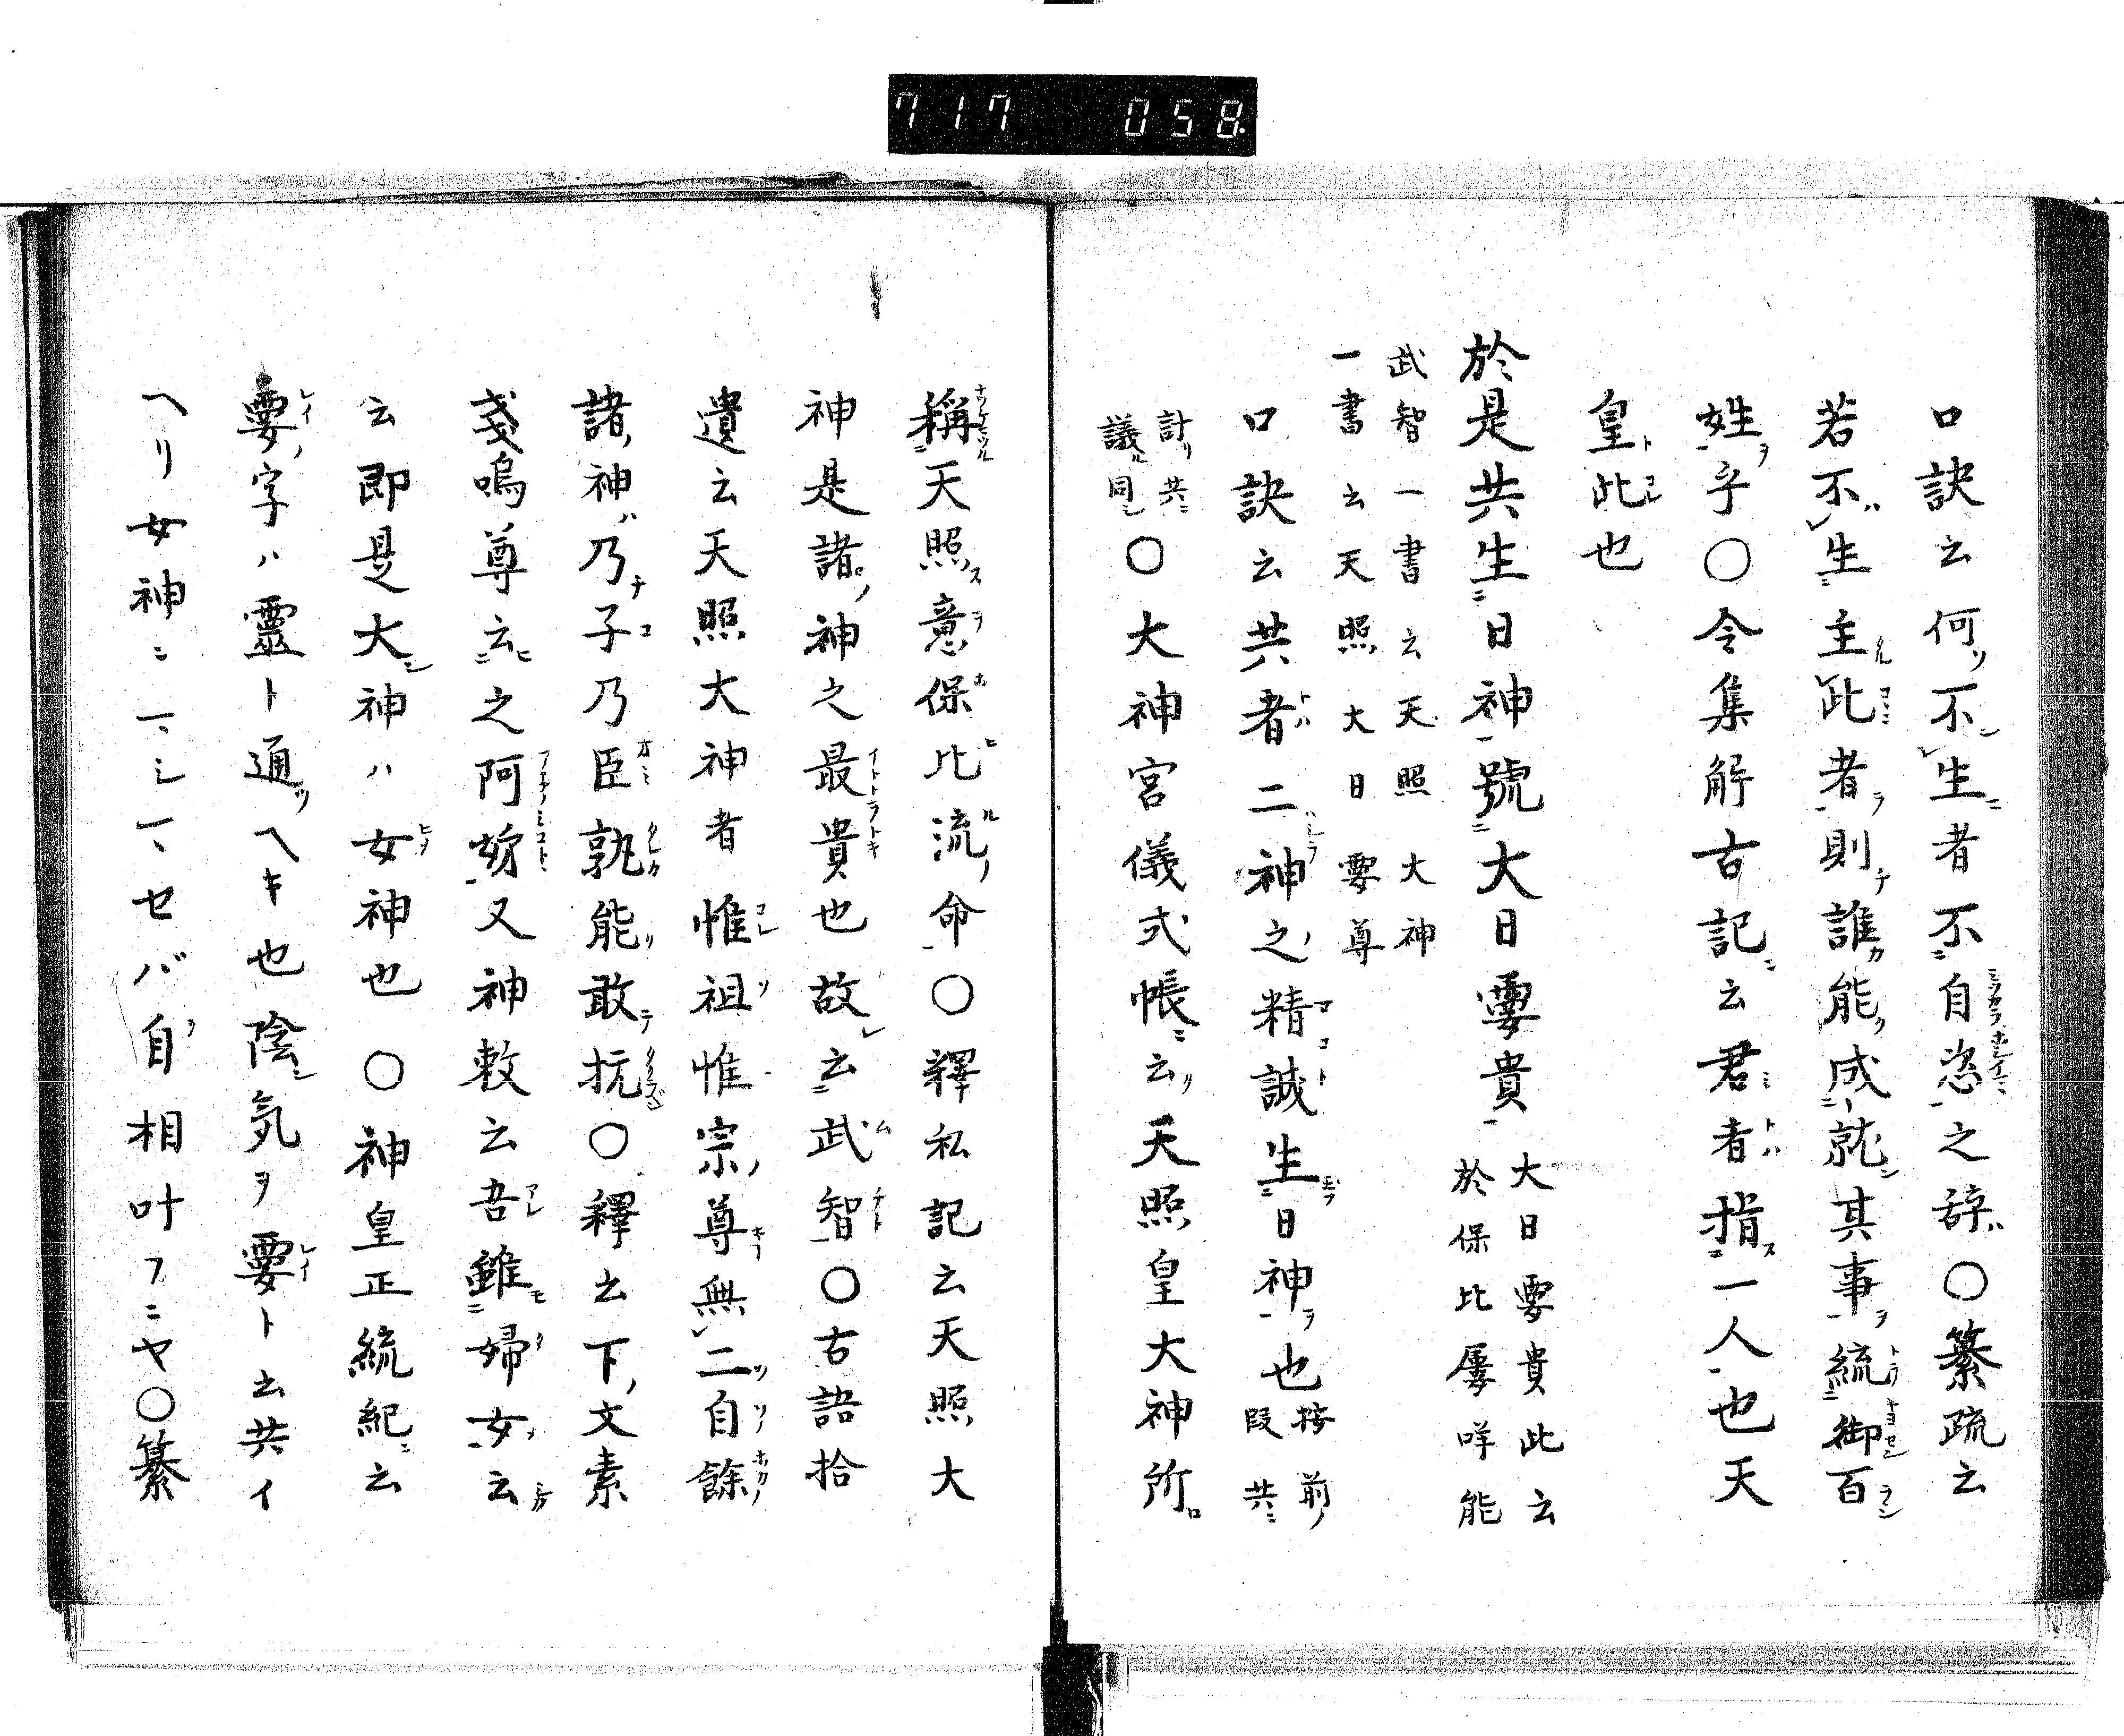 717 058
口訣云何ソ不生者不自恣之辞○纂疏云
若不生主此者則誰能成就其事統御百
姓乎○令集解古記云君者指一人也天
皇此也
於是共生日神號大日孁貴
大日孁貴此云
於保比屢咩能
武智一書云天照大神
一書云天照大日孁尊
口訣云共者二神之精誠生日神也
按前ノ
段共ニ
計リ共ニ
議ル同シ
○大神宮儀式帳云天照皇大神所
稱天照意保比流命○釋私記云天照大
神是諸神之最貴也故云武智○古語拾
遺云天照大神者惟祖惟宗尊無二自餘
諸神ハ乃子乃臣孰能敢抗○釋云下ノ文素
戔嗚尊云之阿姉又神敕云吾雖婦女云
云即是大神ハ女神也○神皇正統紀云
孁ノ字ハ靈ト通ヘキ也陰気ヲ孁ト云共イ
ヘリ女神ニマシマセバ自相叶フニヤ○纂